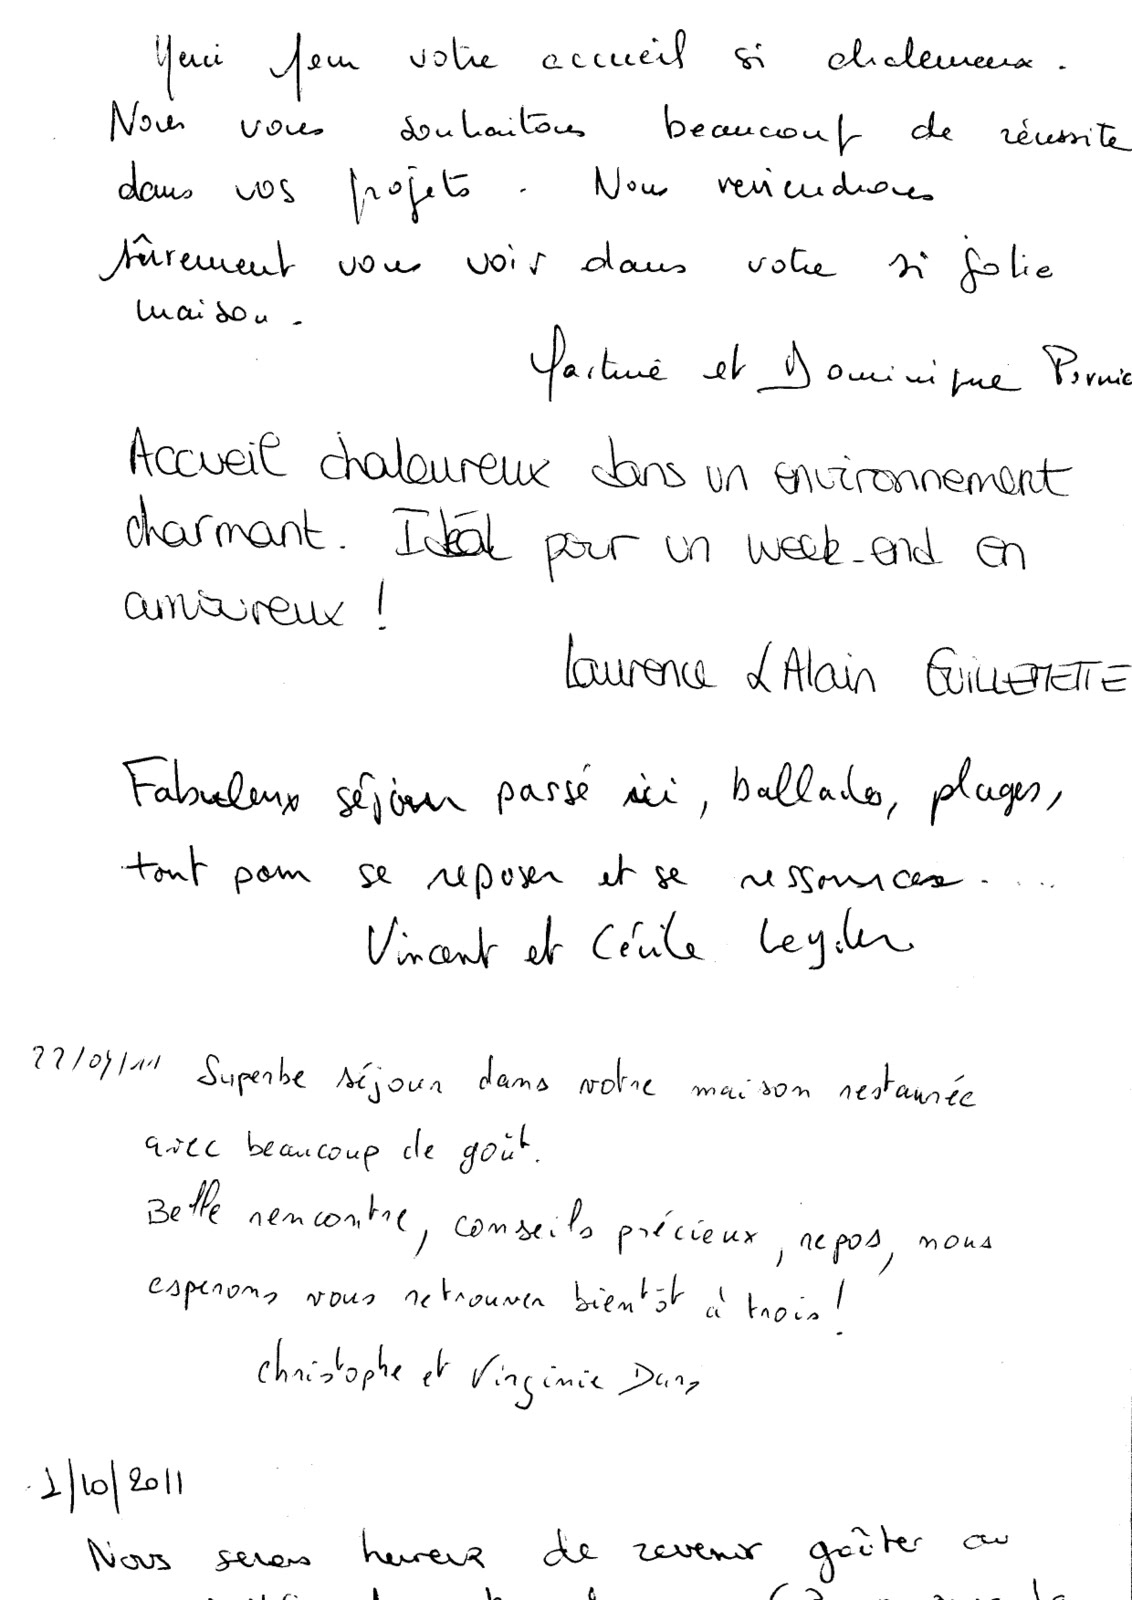 Merci pour votre accueil si chaleureux.
Nous vous souhaitons beaucoup de réussite
dans vos projets. Nous reviendrons
sûrement vous voir dans votre si jolie
maison.
Martine et Dominique
Accueil chaleureux dans un environnement
charmant. Idéal pour un week-end en
amoureux !
Laurence & Alain GUILLEMETTE
Fabuleux séjour passé ici, ballades, plages,
tout pour se reposer et se ressourcer.....
Vincent et Cécile
Superbe séjour dans votre maison restaurée
avec beaucoup de goût.
Belle rencontre, conseils précieux, repos, nous
esperons vous retrouver bientôt à trois !
Christophe et Virginie
1/10/2011
Nous serons heureux de revenir goûter au